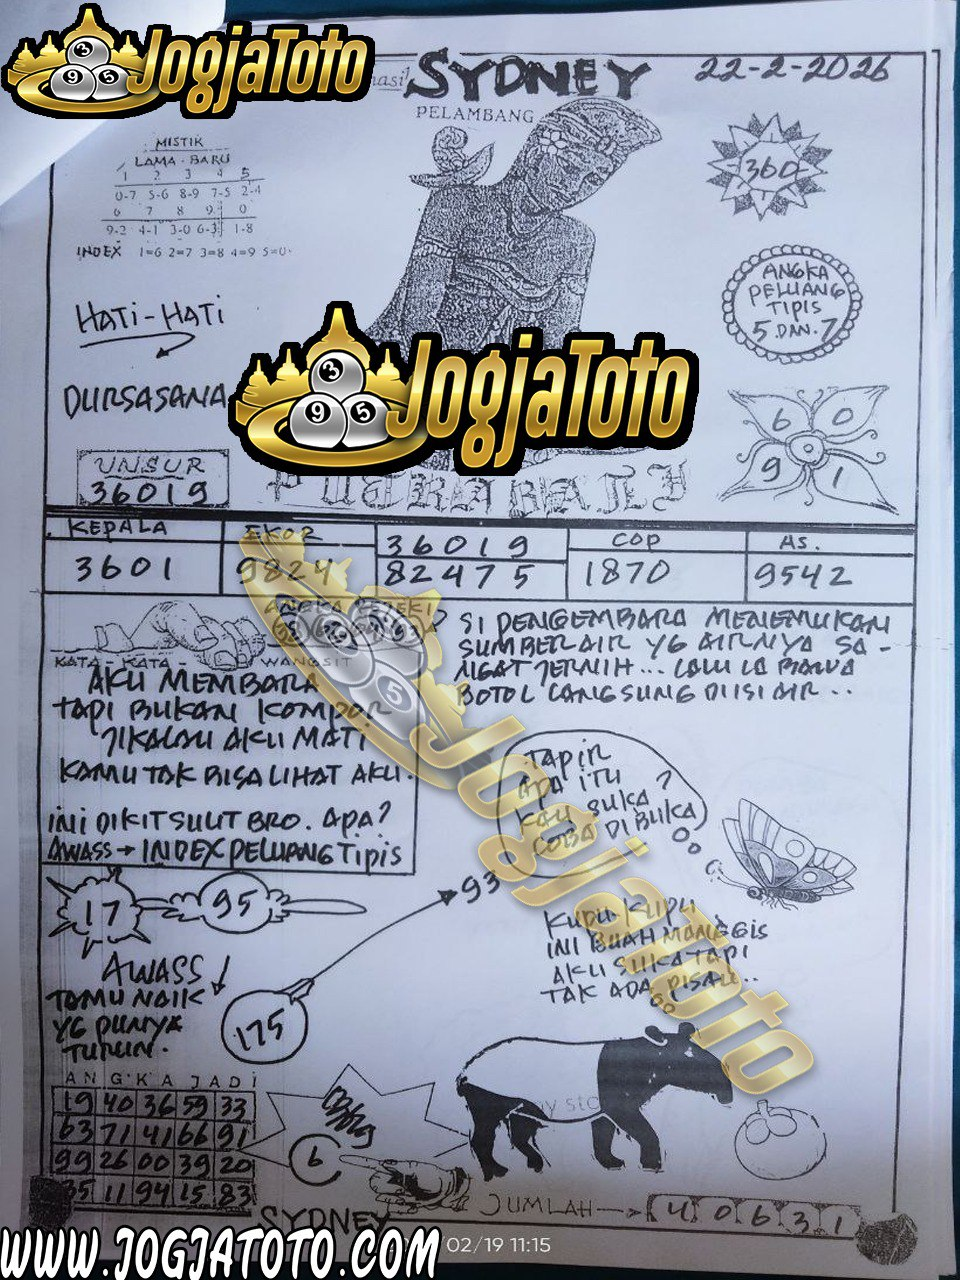 JogjaToto
3
9 5
hasil SYDNEY 22-2-2026
PELAMBANG
MISTIK
LAMA - BARU
1 2 3 4 5
0-7 5-6 8-9 7-5 2-4
6 7 8 9 0
9-2 4-1 3-0 6-3 1-8
INDEX 1=6 2=7 3=8 4=9 5=0
360
ANGKA
PELUANG
TIPIS
5 DAN 7
HATI-HATI
DURSASANA
3
9 5
JogjaToto
6 0
9 1
UNSUR
36019
PUTRA BALI
KEPALA EKOR 36019 COP AS.
3601 9824 82475 1870 9542
KATA-KATA - WANGSIT
AKU MEMBARA
TAPI BUKAN KOMPOR
JIKALAU AKU MATI
KAMU TAK BISA LIHAT AKU.
INI DIKIT SULIT BRO. APA?
AWASS → INDEX PELUANG TIPIS
SI PENGEMBARA MENEMUKAN
SUMBER AIR YG AIRNYA SA-
NGAT JERNIH... LALU IA BAWA
BOTOL LANGSUNG DIISI AIR..
5
JogjaToto
TAPIR
APA ITU
KAU SUKA?
COBA DIBUKA
17 95
93
KUPU-KUPU
INI BUAH MANGGIS
AKU SUKA TAPI
TAK ADA PISAU...
AWASS
TAMU NAIK
YG PUNYA
TURUN.
175
ANGKA JADI
19 40 36 59 33
63 71 41 66 91
99 26 00 39 20
35 11 94 15 83
6
JUMLAH → 4 0 6 3 1
SYDNEY
/02/19 11:15
WWW.JOGJATOTO.COM